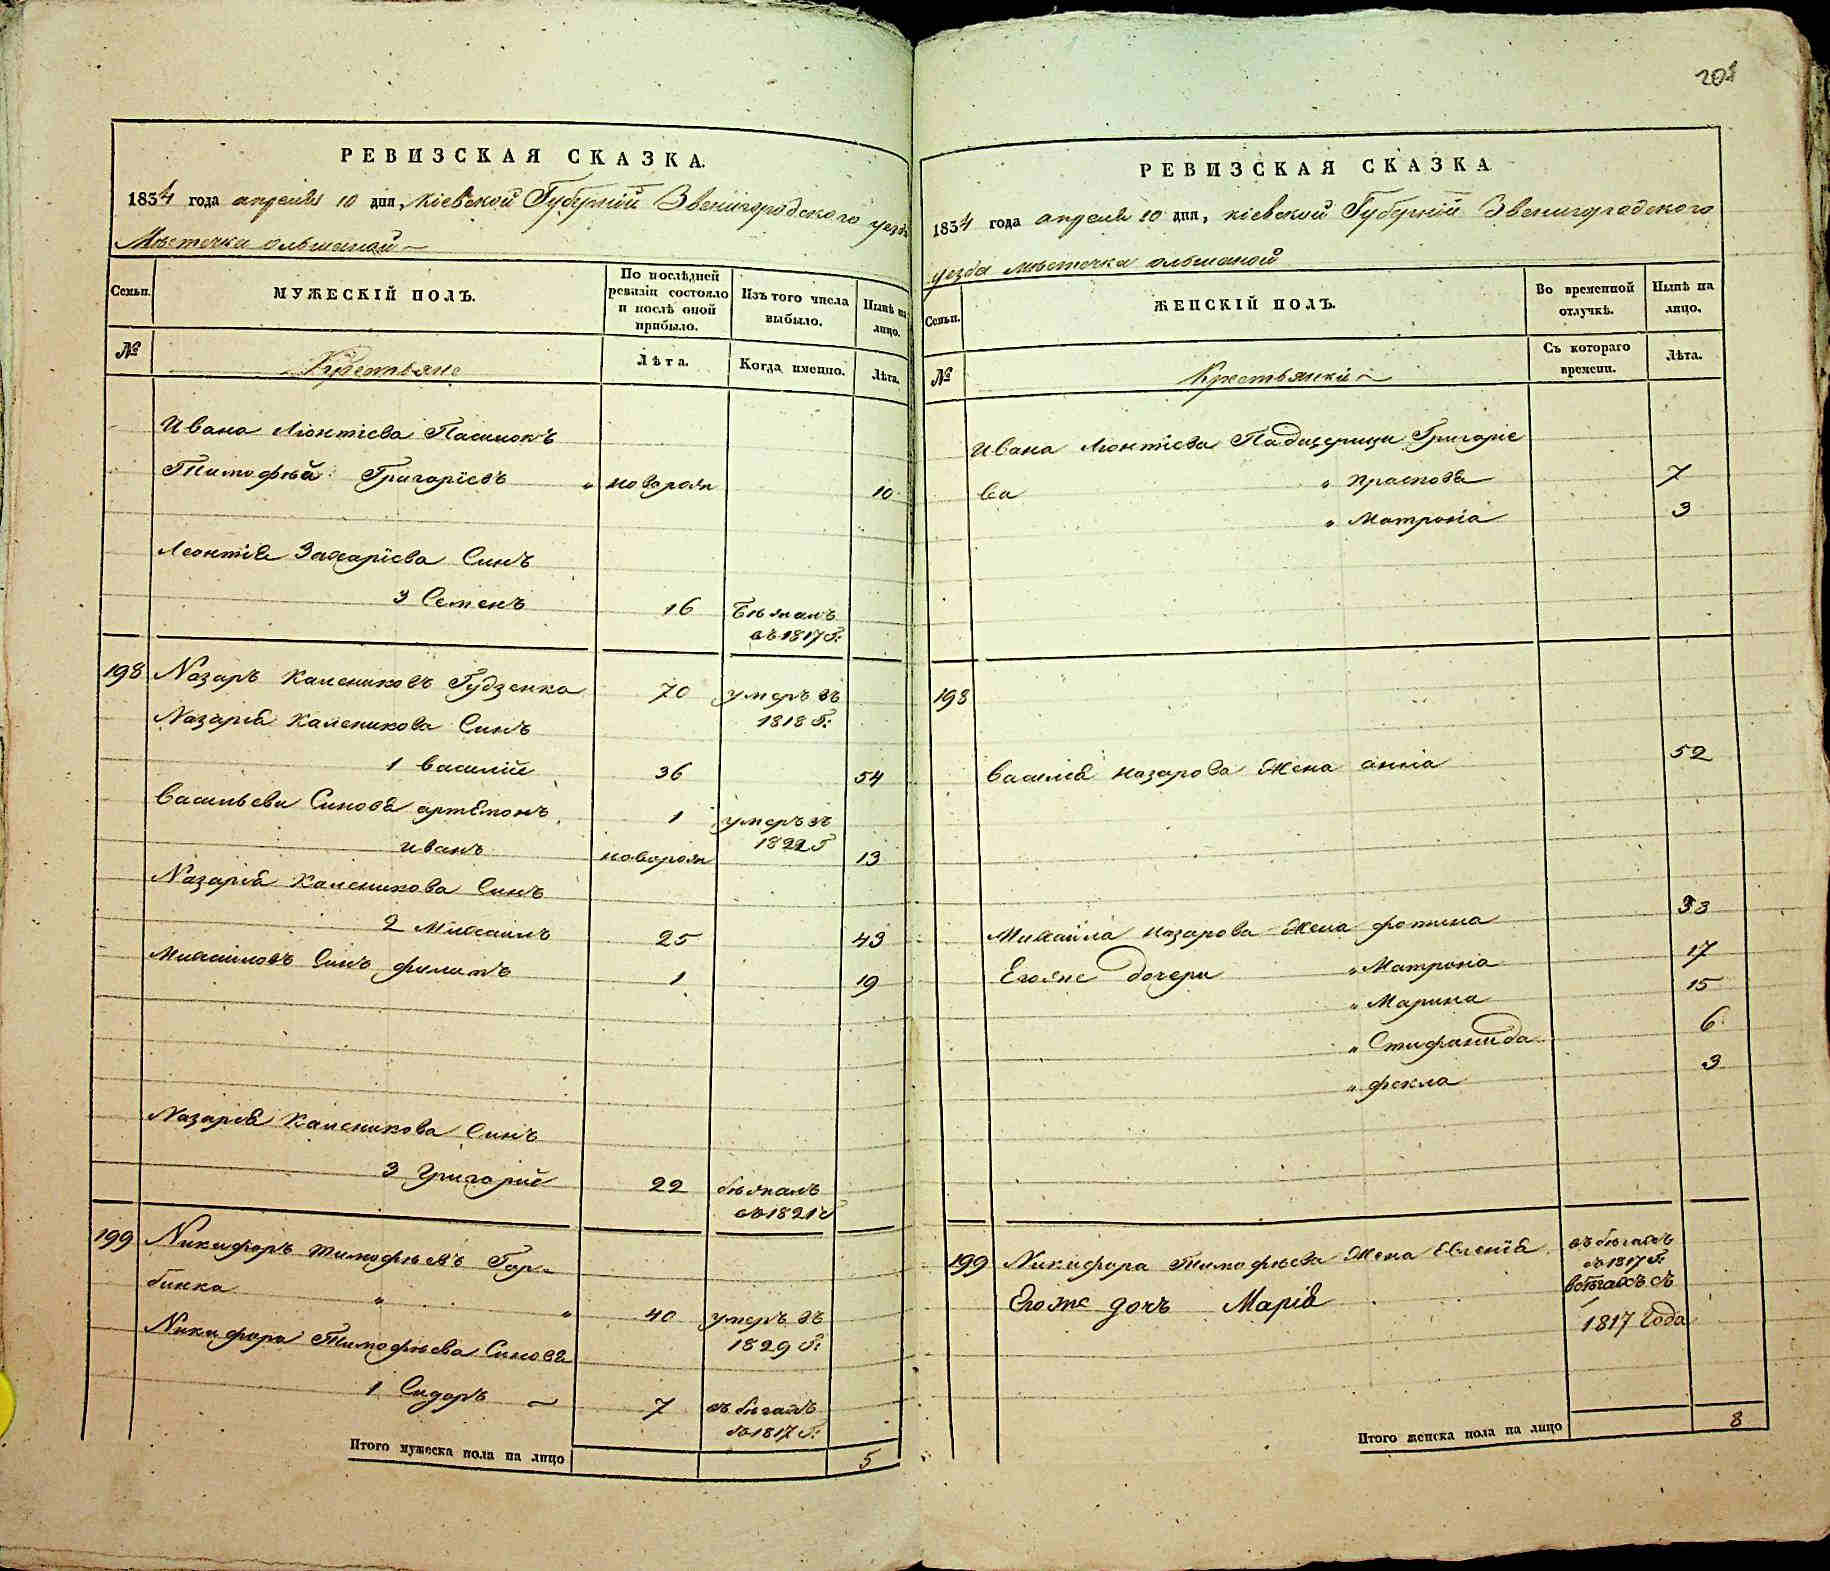 201
РЕВИЗСКАЯ СКАЗКА.
1834 года апреля 10 дня, Кіевской Губерніи Звенигородского уезда
Местечка Ольшаной
Семьи.
МУЖЕСКІЙ ПОЛЪ.
По послѣдней ревизіи состояло и послѣ оной прибыло.
Изъ того числа выбыло.
Нынѣ на лицо.
№
Крестьяне
Лѣта.
Когда именно.
Лѣта.
Ивана Ліонтіева Пасинокъ
Тимофѣй Григоріевъ "новорож 10
Леонтія Захаріева Синъ
3 Семенъ 16 Бѣжалъ
въ 1817 г:
198 Назаръ Калениковъ Гудзенко 70 умеръ въ
1818 г:
Назарія Каленикова Синъ
1 Василій 36 54
Васильеви Синовя артемонъ 1 умеръ въ
1822 г
иванъ новорож 13
Назарія Каленикова Синъ
2 Михаилъ 25 43
Михаиловъ Синъ филипъ 1 19
Назарія Каленикова Синъ
3 Григорій 22 бѣжалъ
въ 1821 г
199 Никифоръ тимофѣевъ Гор-
бинка " " 40 умеръ въ
1829 г:
Никифора Тимофѣева Синовя
1 Сидоръ 7 въ бѣгахъ
съ 1817 г:
Итого мужеска пола на лицо 5
РЕВИЗСКАЯ СКАЗКА
1834 года апреля 10 дня, кіевской Губерніи Звенигородского
уезда местечка ольшаной
Семьи.
ЖЕНСКІЙ ПОЛЪ.
Во временной отлучкѣ.
Нынѣ на лицо.
№
Крестьянки
Съ котораго времени.
Лѣта.
Ивана Ліонтіева Падщерици Григоріе
ва " прасковя 7
" Матрона 3
198
Василія назарова Жена анна 52
Михаила назарова Жена фотина 33
Егоже дочери " Матрона 17
" Марина 15
" Стифанида 6
" фекла 3
199 Никифора Тимофѣева Жена Евгенія въ бѣгахъ
съ 1817 г:
Егоже дочь Марія вбѣгахъ съ
1817 года
Итого женска пола на лицо 8